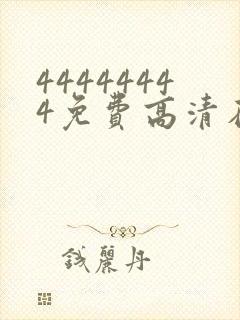 4444444
4免费高清在
钱丽丹